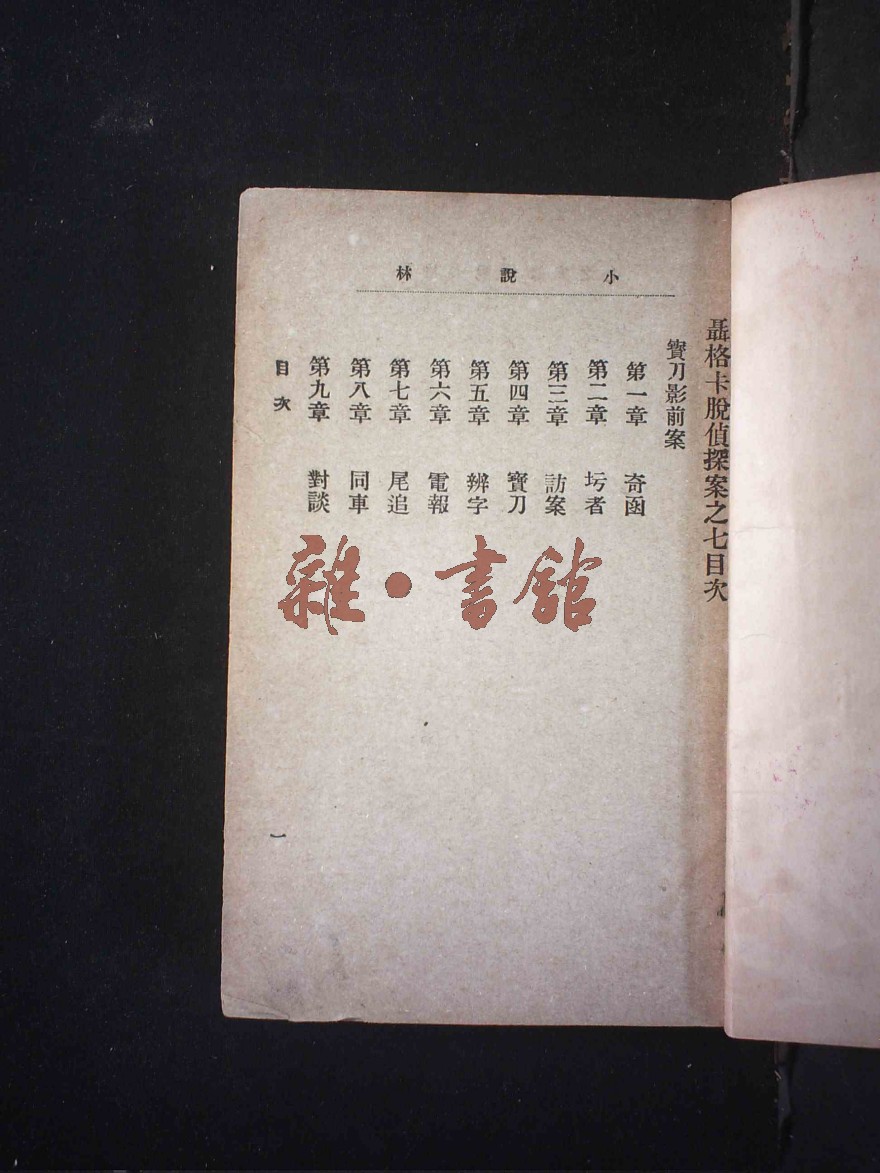 小說林
聶格卡脫偵探案之七目次
寶刀影前案
第一章 奇函
第二章 圬者
第三章 訪案
第四章 寶刀
第五章 辨字
第六章 電報
第七章 尾追
第八章 同車
第九章 對談
目次
一
雜•書館